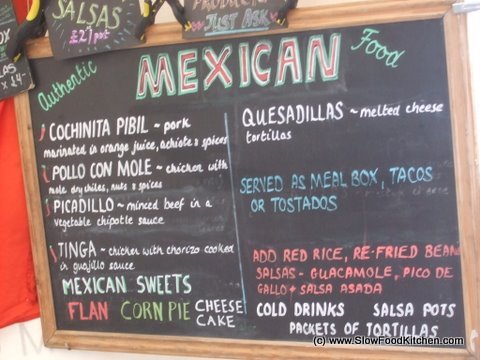 SALSAS
£2/pot
PRODUCTS
JUST ASK
Authentic
MEXICAN
Food
COCHINITA PIBIL ~ pork
marinated in orange juice, achiote & spices
POLLO CON MOLE ~ chicken with
mole dry chiles, nuts & spices
PICADILLO ~ minced beef in a
vegetable chipotle sauce
TINGA ~ chicken with chorizo cooked
in guajillo sauce
MEXICAN SWEETS
FLAN CORN PIE CHEESE
CAKE
QUESADILLAS ~ melted cheese
tortillas
SERVED AS MEAL BOX, TACOS
OR TOSTADOS
ADD RED RICE, RE-FRIED BEAN
SALSAS - GUACAMOLE, PICO DE
GALLO + SALSA ASADA
COLD DRINKS SALSA POTS
PACKETS OF TORTILLAS
(c) www.SlowFoodKitchen.com